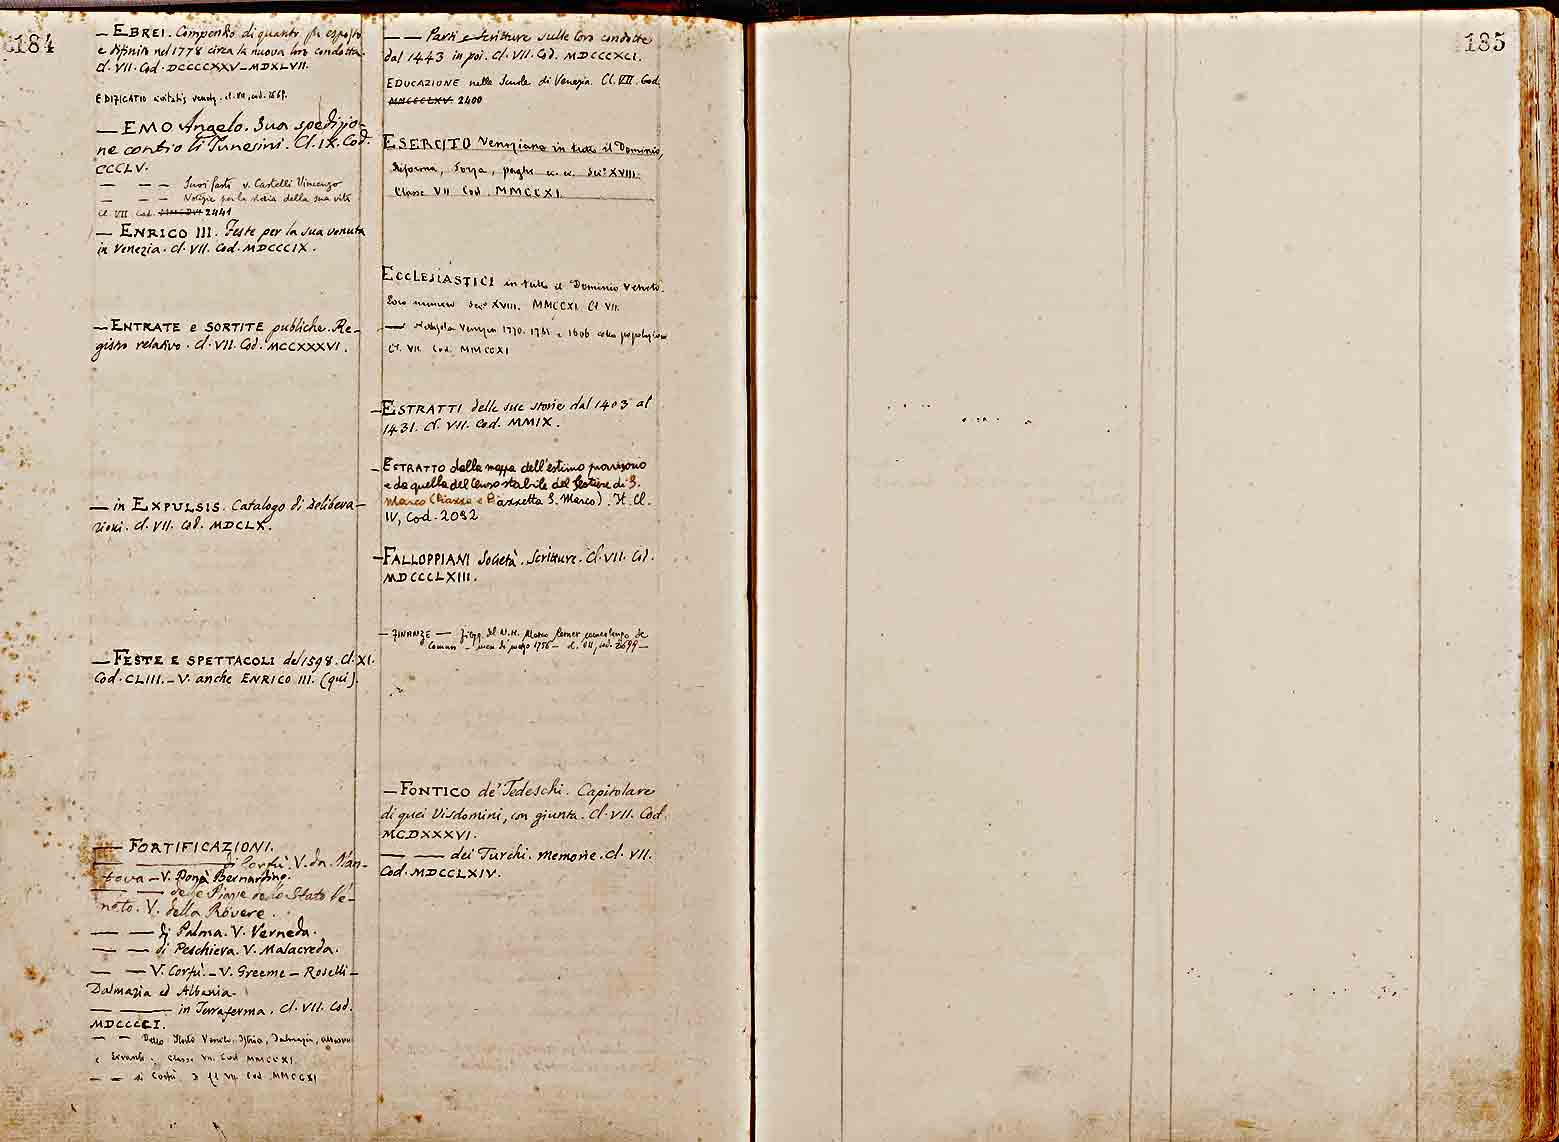 184
— EBREI. Compendio di quanto fu esposto
e difinito nel 1778 circa la nuova loro condotta.
Cl. VII. Cod. DCCCCXXV_MDXLVII.
EDIFICATIO civitatis venet. cl. VII, cod.
— EMO Angelo. Sua spedizio-
ne contro li Tunesini. Cl. IX. Cod.
CCCLV.
— — — Suoi fasti v. Castelli Vincenzo
— — — Notizie per la storia della sua vita
Cl. VII Cod. 2441
— ENRICO III. Feste per la sua venuta
in Venezia. Cl. VII. Cod. MDCCCIX.
— ENTRATE e SORTITE publiche. Re-
gistro relativo. Cl. VII. Cod. MCCXXXVI.
— in EXPULSIS. Catalogo di delibera-
zioni. Cl. VII. Cod. MDCLX.
— FESTE E SPETTACOLI del 1598. Cl. XI.
Cod. CLIII. — V. anche ENRICO III. (qui).
— FORTIFICAZIONI.
— di Corfù. V. da Man-
tova — V. Donà Bernardino.
— — delle Piazze dello Stato Vé-
neto. V. della Róvere.
— — di Palma. V. Verneda.
— — di Peschiera. V. Malacreda.
— — V. Corfù. — V. Greeme — Roselli —
Dalmazia ed Albania.
— — in Terraferma. Cl. VII. Cod.
MDCCCCI.
— — Dello Stato Veneto, Istria, Dalmazia,
e Levante. Classe VII. Cod MMCCXI.
— — di Corfù Cl VII Cod. MMCCXI
— — Parti e Scritture sulle loro condotte
dal 1443 in poi. Cl. VII. Cod. MDCCCXCI.
EDUCAZIONE nelle Scuole di Venezia. Cl. VII. Cod.
MMCCCLXV. 2400
ESERCITO Veneziano in tutto il Dominio,
Riforma, forza, paghe ec. ec. Sec.º XVIII.
Classe VII Cod. MMCCXI.
ECCLESIASTICI in tutto il Dominio Veneto.
Loro numero Sec.º XVIII. MMCCXI Cl VII.
— 1770. 1781 e 1606 colla popolazione
Cl. VII. Cod. MMCCXI
— ESTRATTI delle sue storie dal 1403 al
1431. Cl. VII. Cod. MMIX.
— ESTRATTO dalla mappa dell'estimo provvisorio
e da quella del Censo stabile del Sestiere di S.
Marco (Piazza e Piazzetta S. Marco). It. Cl.
IV, Cod. 2092
— FALLOPPIANI Società. Scritture. Cl. VII. Cod.
MDCCCCLXIII.
— FINANZE — del N.H. Marco Corner camerlengo de
Comun — mese di marzo 1756 — cl. VII, cod. 2699 —
— FONTICO de' Tedeschi. Capitolare
di quei Visdomini, con giunta. Cl. VII. Cod.
MCDXXXVI.
— — dei Turchi. Memorie. Cl. VII.
Cod. MDCCLXIV.
185